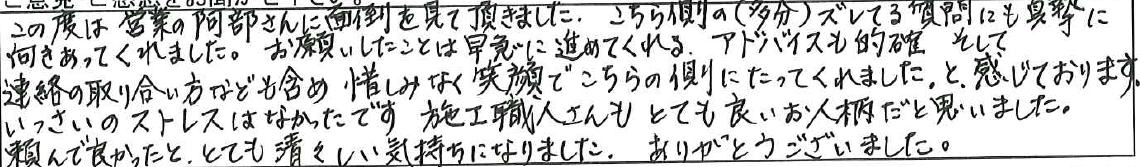 この度は営業の阿部さんに面倒を見て頂きました。こちら側の(多分)ズレてる質問にも真摯に
向きあってくれました。お願いしたことは早急に進めてくれる。アドバイスも的確 そして
連絡の取り合い方なども含め 惜しみなく笑顔でこちらの側にたってくれました。と、感じております
いっさいのストレスはなかったです 施工職人さんもとても良いお人柄だと思いました。
頼んで良かったと、とても清々しい気持ちになりました。ありがとうございました。